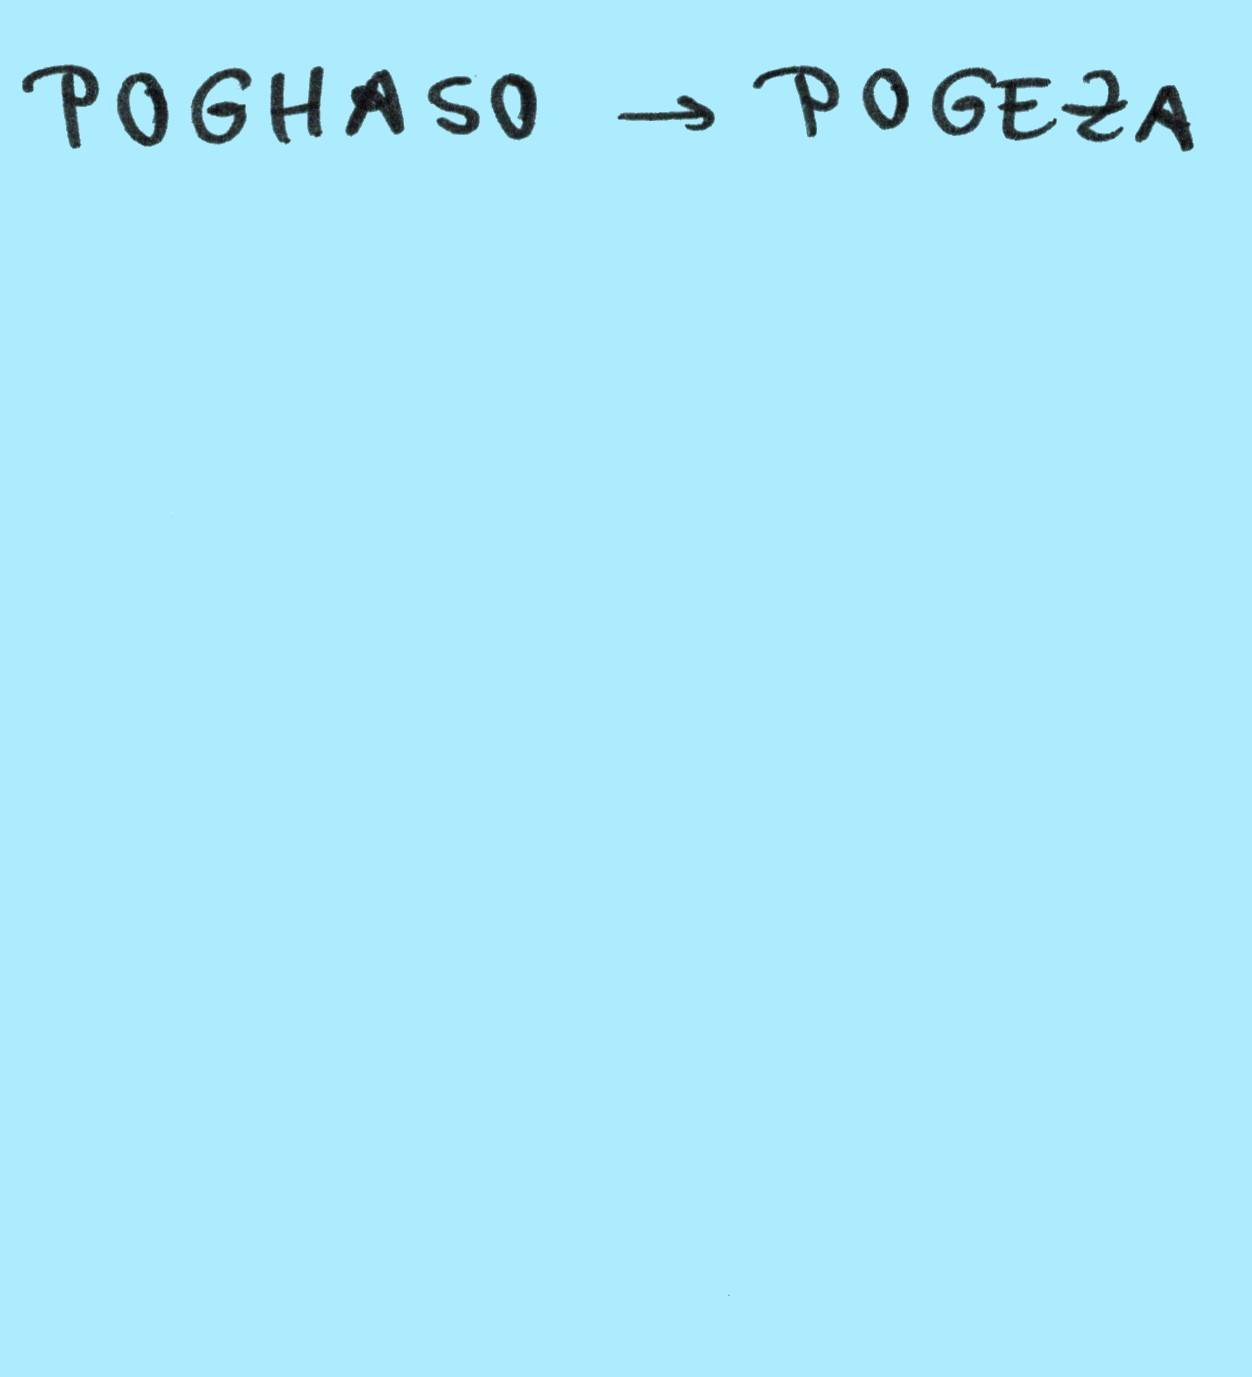 POGHASO → POGEZA